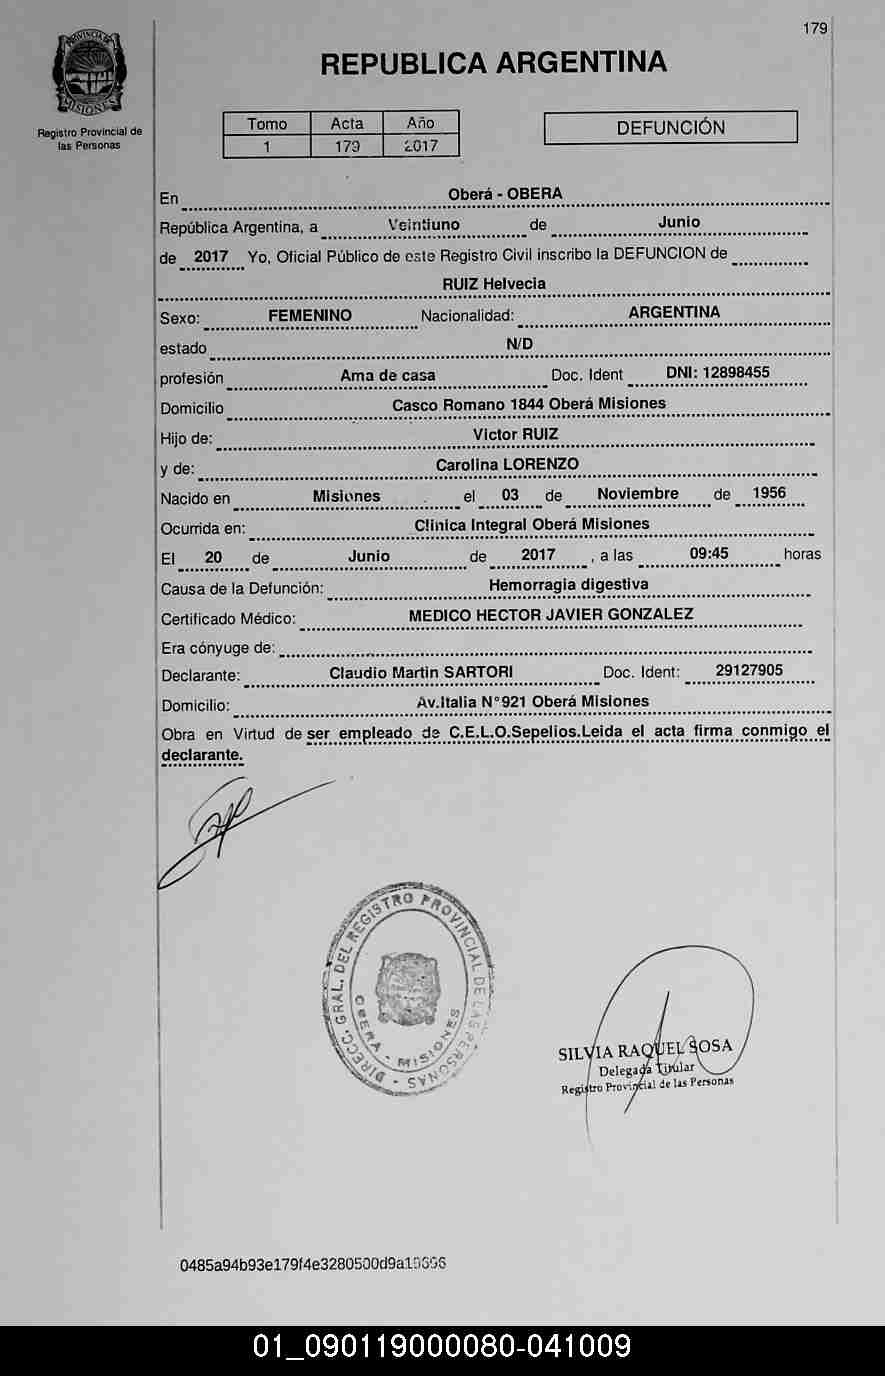 179
PROVINCIA DE
MISIONES
Registro Provincial de
las Personas
REPUBLICA ARGENTINA
Tomo Acta Año
1 179 2017
DEFUNCIÓN
En Oberá - OBERA
República Argentina, a Veintiuno de Junio
de 2017 Yo, Oficial Público de este Registro Civil inscribo la DEFUNCION de
RUIZ Helvecia
Sexo: FEMENINO Nacionalidad: ARGENTINA
estado N/D
profesión Ama de casa Doc. Ident DNI: 12898455
Domicilio Casco Romano 1844 Oberá Misiones
Hijo de: Victor RUIZ
y de: Carolina LORENZO
Nacido en Misiones el 03 de Noviembre de 1956
Ocurrida en: Clinica Integral Oberá Misiones
El 20 de Junio de 2017, a las 09:45 horas
Causa de la Defunción: Hemorragia digestiva
Certificado Médico: MEDICO HECTOR JAVIER GONZALEZ
Era cónyuge de:
Declarante: Claudio Martin SARTORI Doc. Ident: 29127905
Domicilio: Av.Italia N°921 Oberá Misiones
Obra en Virtud de ser empleado de C.E.L.O.Sepelios.Leida el acta firma conmigo el
declarante.
DIRECC. GRAL. DEL REGISTRO PROVINCIAL DE LAS PERSONAS
OBERA - MISIONES
SILVIA RAQUEL SOSA
Delegada Titular
Registro Provincial de las Personas
01_090119000080-041009